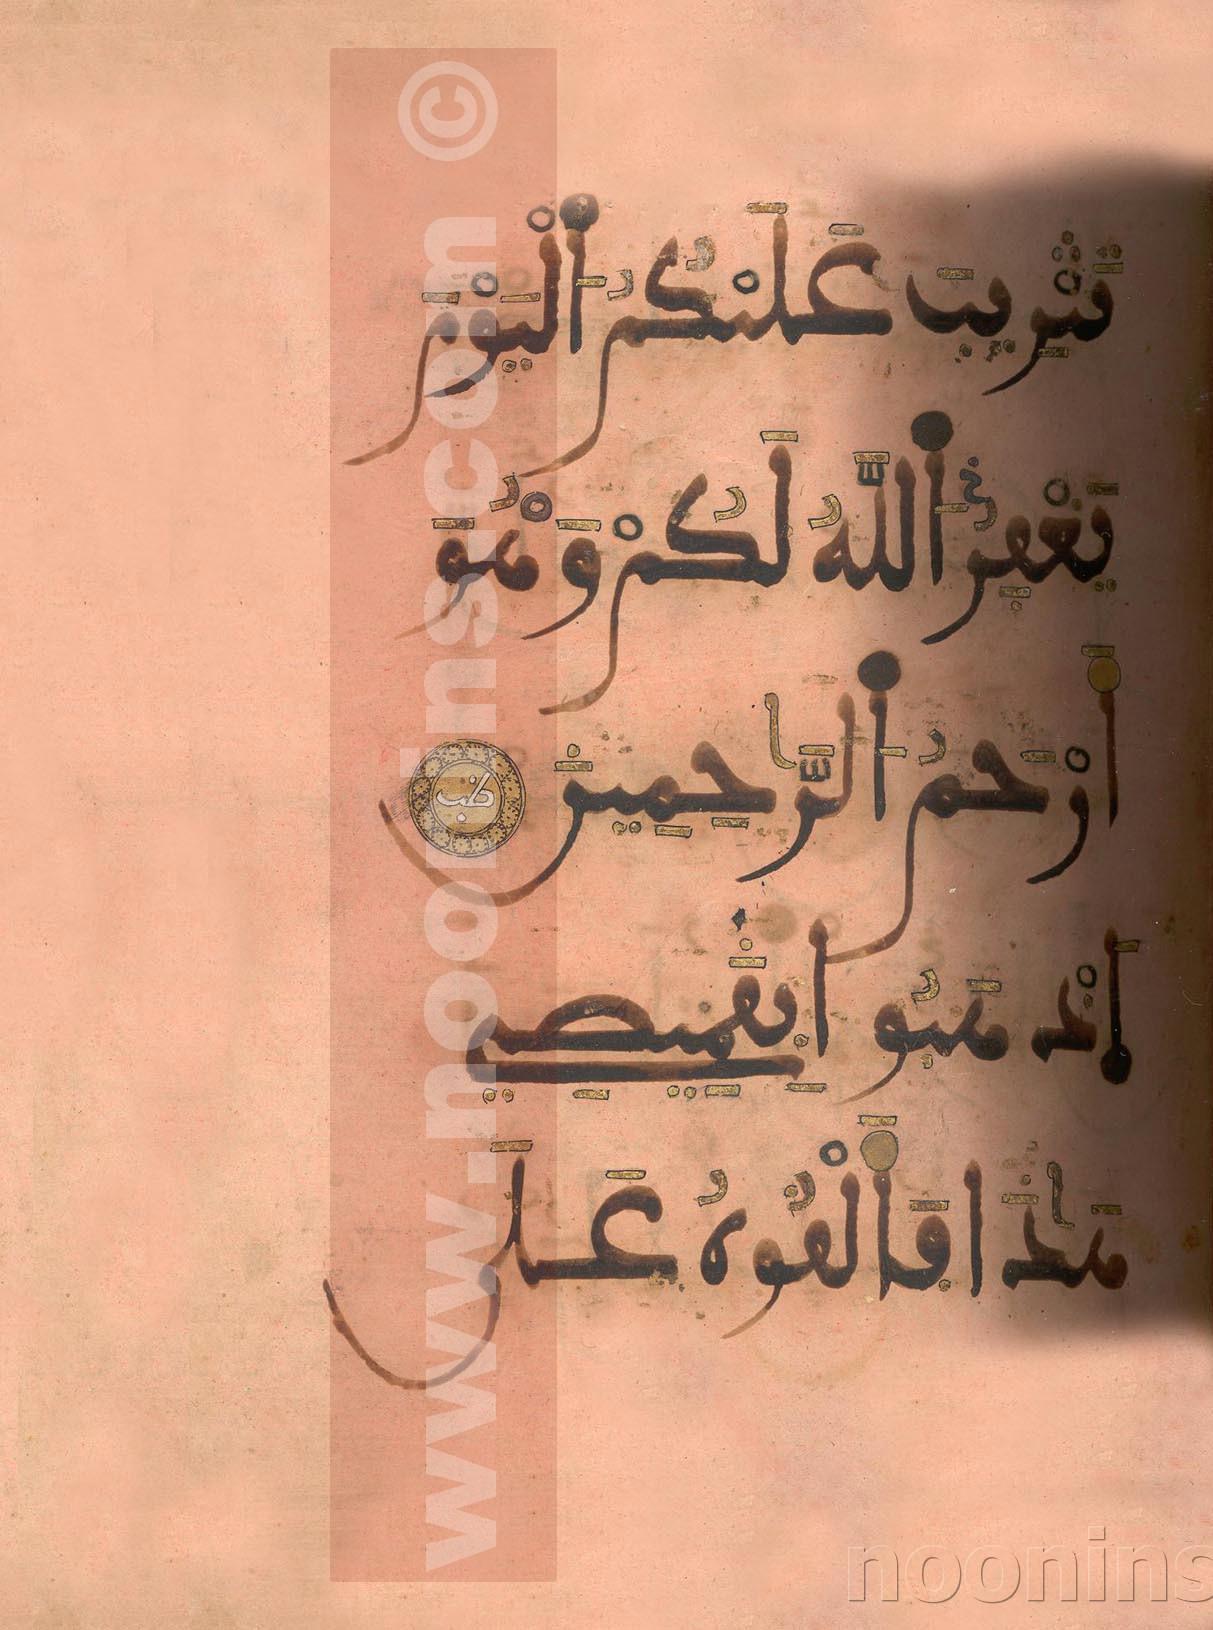 تَثْرِيبَ عَلَيْكُمُ اُ۬لْيَوْمَ
يَغْفِرُ اُ۬للَّهُ لَكُمْ وَهُوَ
أَرْحَمُ اُ۬لرَّٰحِمِينَ ضب
اِ۪ذْهَبُوا بِقَمِيصِي
هَٰذَا فَأَلْقُوهُ عَلَى
www.noonins.com ©
noonins